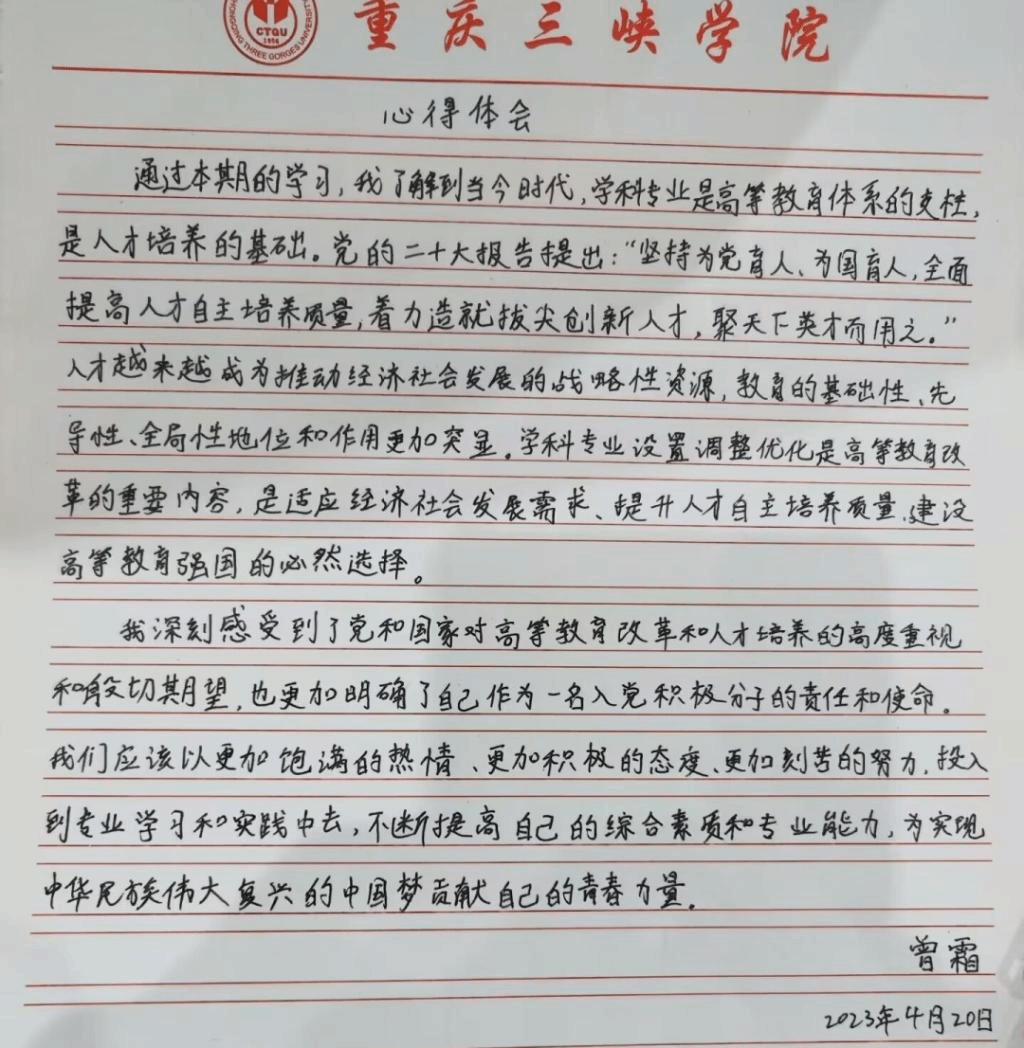 CTGU
1956
CHONGQING THREE GORGES UNIVERSITY
重庆三峡学院
心得体会
通过本期的学习,我了解到当今时代,学科专业是高等教育体系的支柱,
是人才培养的基础。党的二十大报告提出:“坚持为党育人、为国育人,全面
提高人才自主培养质量,着力造就拔尖创新人才,聚天下英才而用之。”
人才越来越成为推动经济社会发展的战略性资源,教育的基础性、先
导性、全局性地位和作用更加突显。学科专业设置调整优化是高等教育改
革的重要内容,是适应经济社会发展需求、提升人才自主培养质量、建设
高等教育强国的必然选择。
我深刻感受到了党和国家对高等教育改革和人才培养的高度重视
和殷切期望,也更加明确了自己作为一名入党积极分子的责任和使命。
我们应该以更加饱满的热情、更加积极的态度、更加刻苦的努力,投入
到专业学习和实践中去,不断提高自己的综合素质和专业能力,为实现
中华民族伟大复兴的中国梦贡献自己的青春力量。
曾霜
2023年4月20日